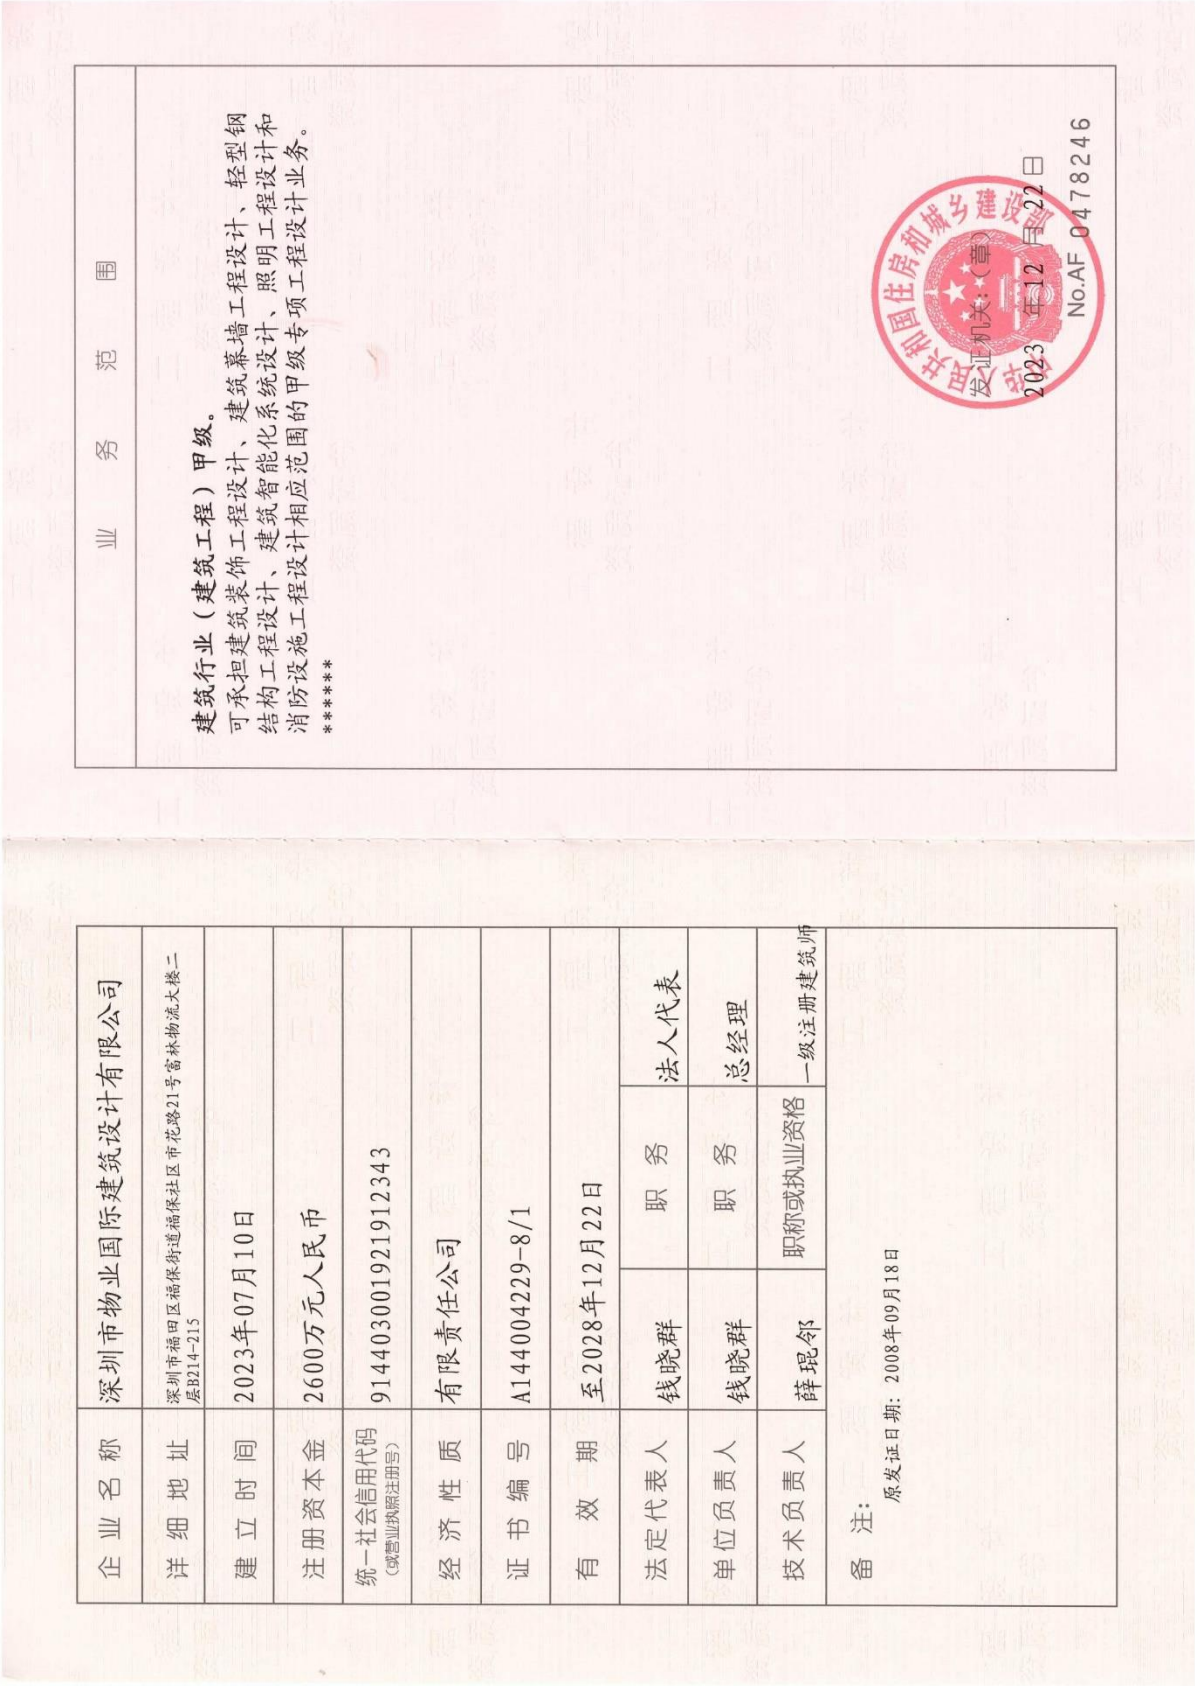 企业名称 深圳市物业国际建筑设计有限公司
详细地址 深圳市福田区福保街道福保社区市花路21号富林物流大楼二
层B214-215
建立时间 2023年07月10日
注册资本金 2600万元人民币
统一社会信用代码 914403001921912343
(或营业执照注册号)
经济性质 有限责任公司
证书编号 A144004229-8/1
有效期 至2028年12月22日
法定代表人 钱晓群 职务 法人代表
单位负责人 钱晓群 职务 总经理
技术负责人 薛琨邻 职称或执业资格 一级注册建筑师
备注:
原发证日期: 2008年09月18日
业务范围
建筑行业（建筑工程）甲级。
可承担建筑装饰工程设计、建筑幕墙工程设计、轻型钢
结构工程设计、建筑智能化系统设计、照明工程设计和
消防设施工程设计相应范围的甲级专项工程设计业务。
******
中华人民共和国住房和城乡建设部
发证机关:(章)
2023年12月22日
No.AF 0478246